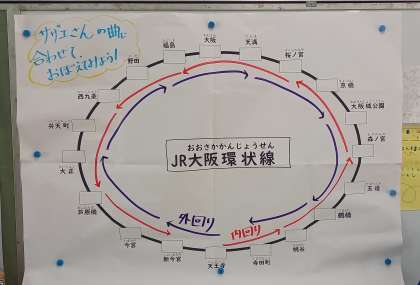 サザエさんの曲に
合わせて、
おぼえてみよう!
大阪
天満
桜ノ宮
京橋
大阪城公園
森ノ宮
玉造
鶴橋
桃谷
寺田町
天王寺
新今宮
今宮
芦原橋
大正
弁天町
西九条
野田
福島
おおさかかんじょうせん
JR大阪環状線
外回り
内回り